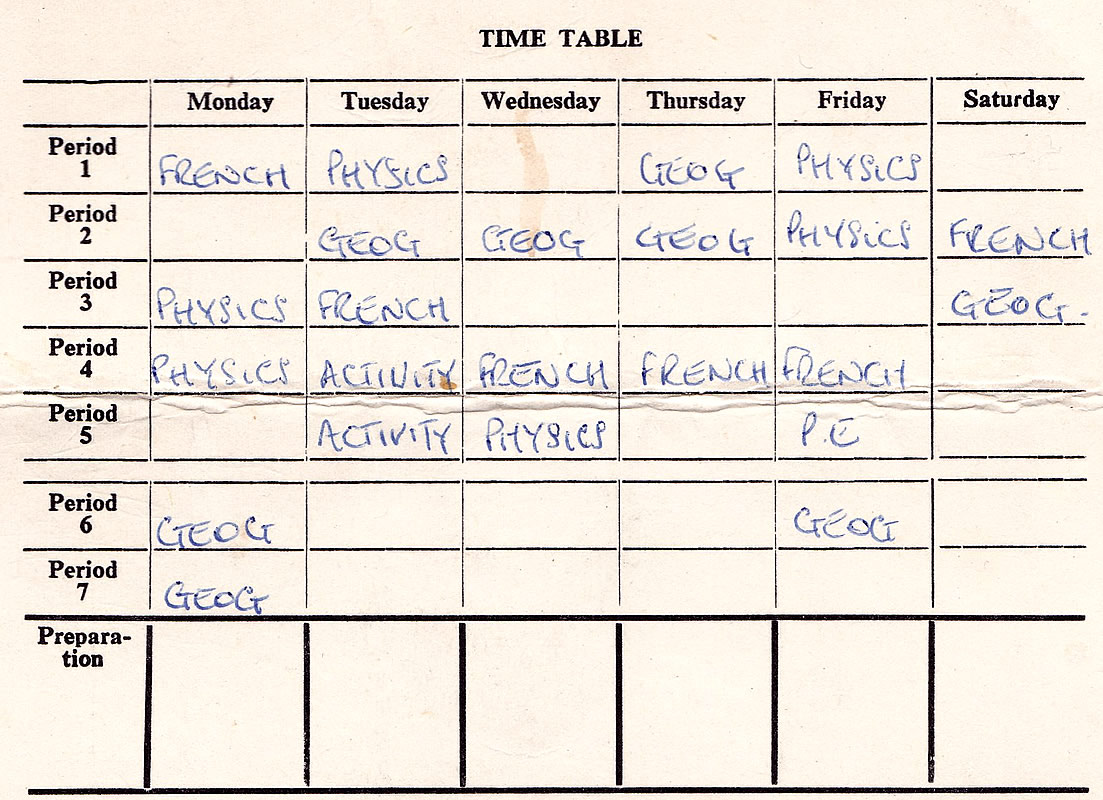 TIME TABLE
Monday Tuesday Wednesday Thursday Friday Saturday
Period 1 FRENCH PHYSICS GEOG PHYSICS
Period 2 GEOG GEOG GEOG PHYSICS FRENCH
Period 3 PHYSICS FRENCH GEOG.
Period 4 PHYSICS ACTIVITY FRENCH FRENCH FRENCH
Period 5 ACTIVITY PHYSICS P.E
Period 6 GEOG GEOG
Period 7 GEOG
Prepara-
tion